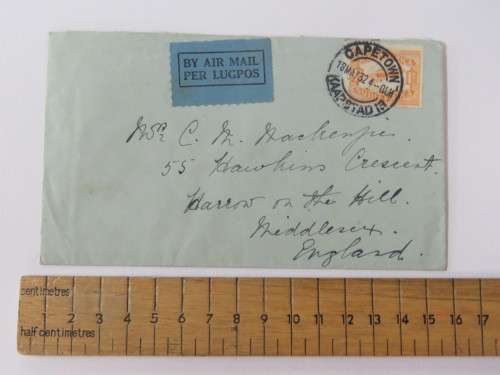 BY AIR MAIL
PER LUGPOS
CAPETOWN
18 MAY 32
KAAPSTAD 13
Mr C. M. Mackenzie
55 Hawkins Crescent
Harrow on the Hill.
Middlesex.
England.
centimetres
1 2 3 4 5 6 7 8 9 10 11 12 13 14 15 16 17
half centimetres